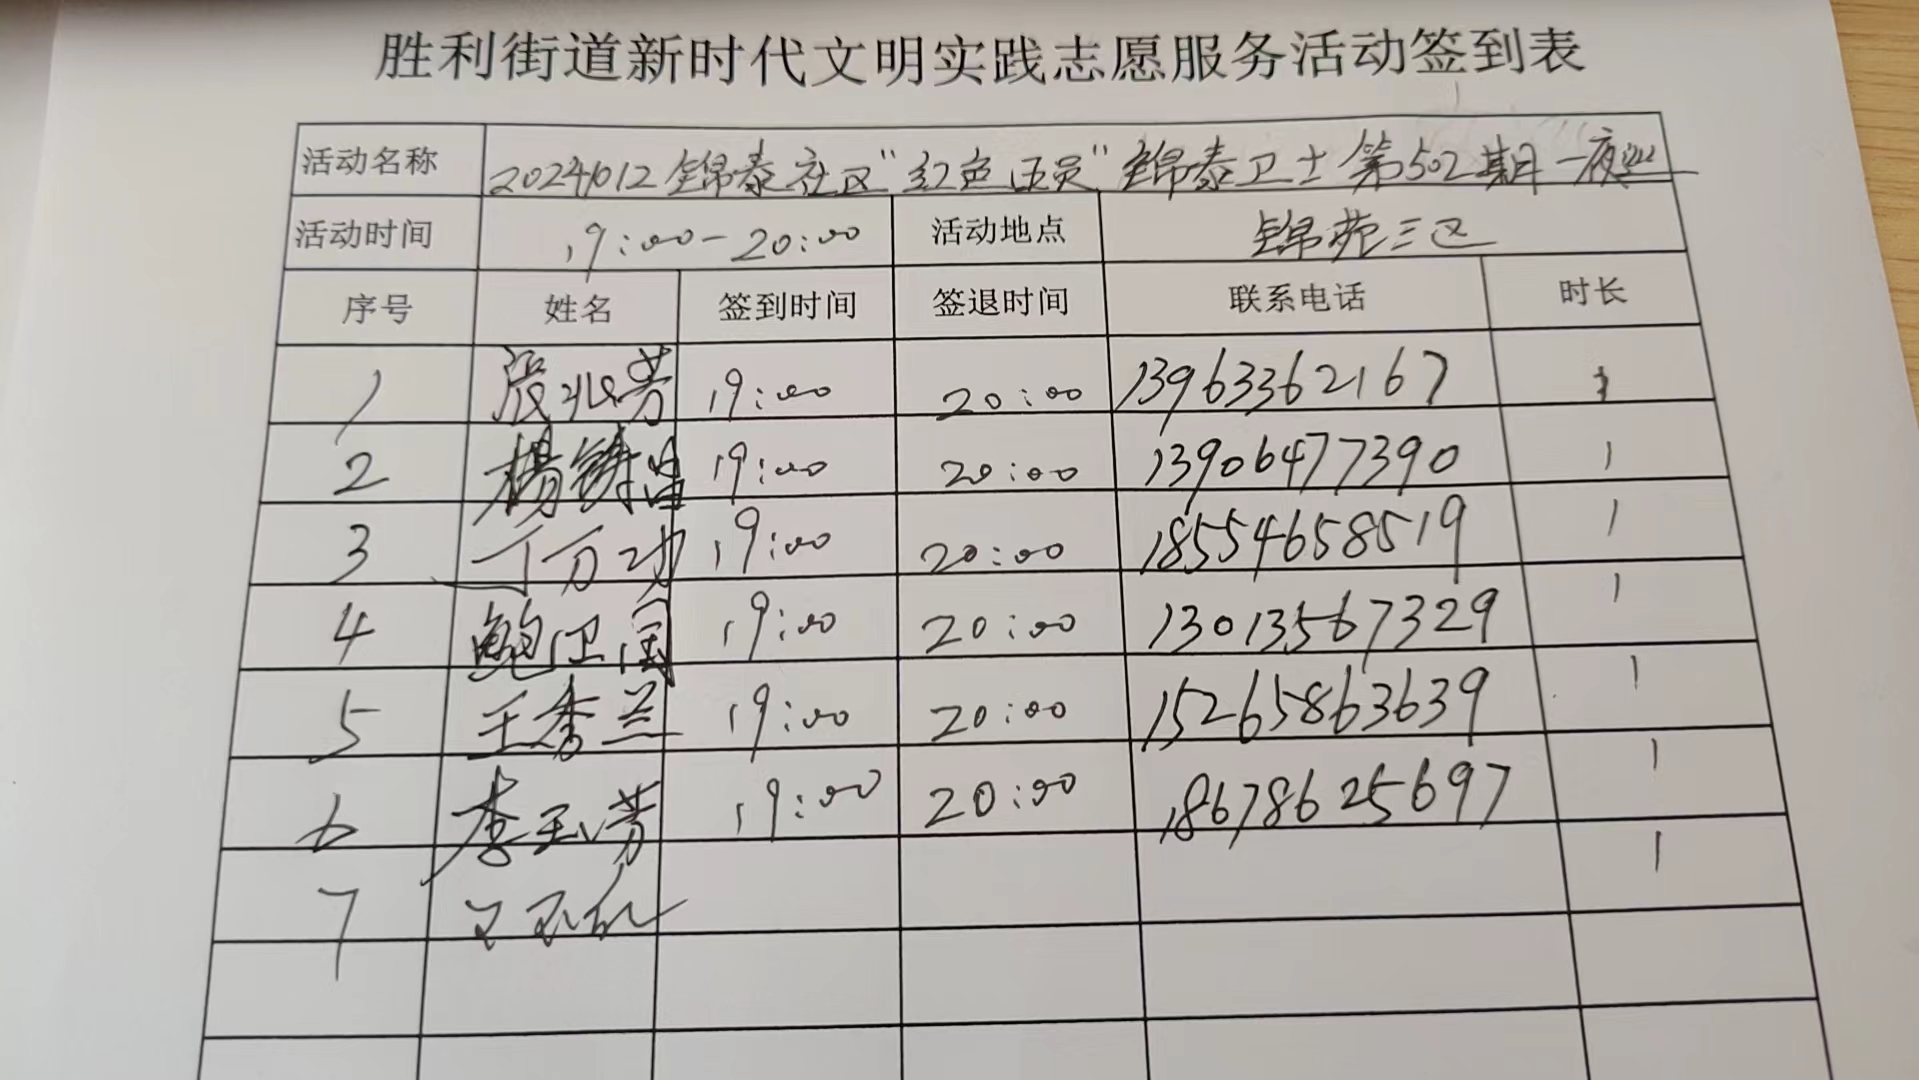 胜利街道新时代文明实践志愿服务活动签到表
活动名称 20241012锦泰社区“红色网员”锦泰卫士第502期一夜巡
活动时间 19:00-20:00 活动地点 锦苑三区
序号 姓名 签到时间 签退时间 联系电话 时长
1 张兆芳 19:00 20:00 13963362167 1
2 杨铸 19:00 20:00 13906477390 1
3 丁万功 19:00 20:00 18554658519 1
4 鲍卫国 19:00 20:00 13013567329 1
5 王秀兰 19:00 20:00 15265863639 1
6 李玉芳 19:00 20:00 18678625697 1
7 1